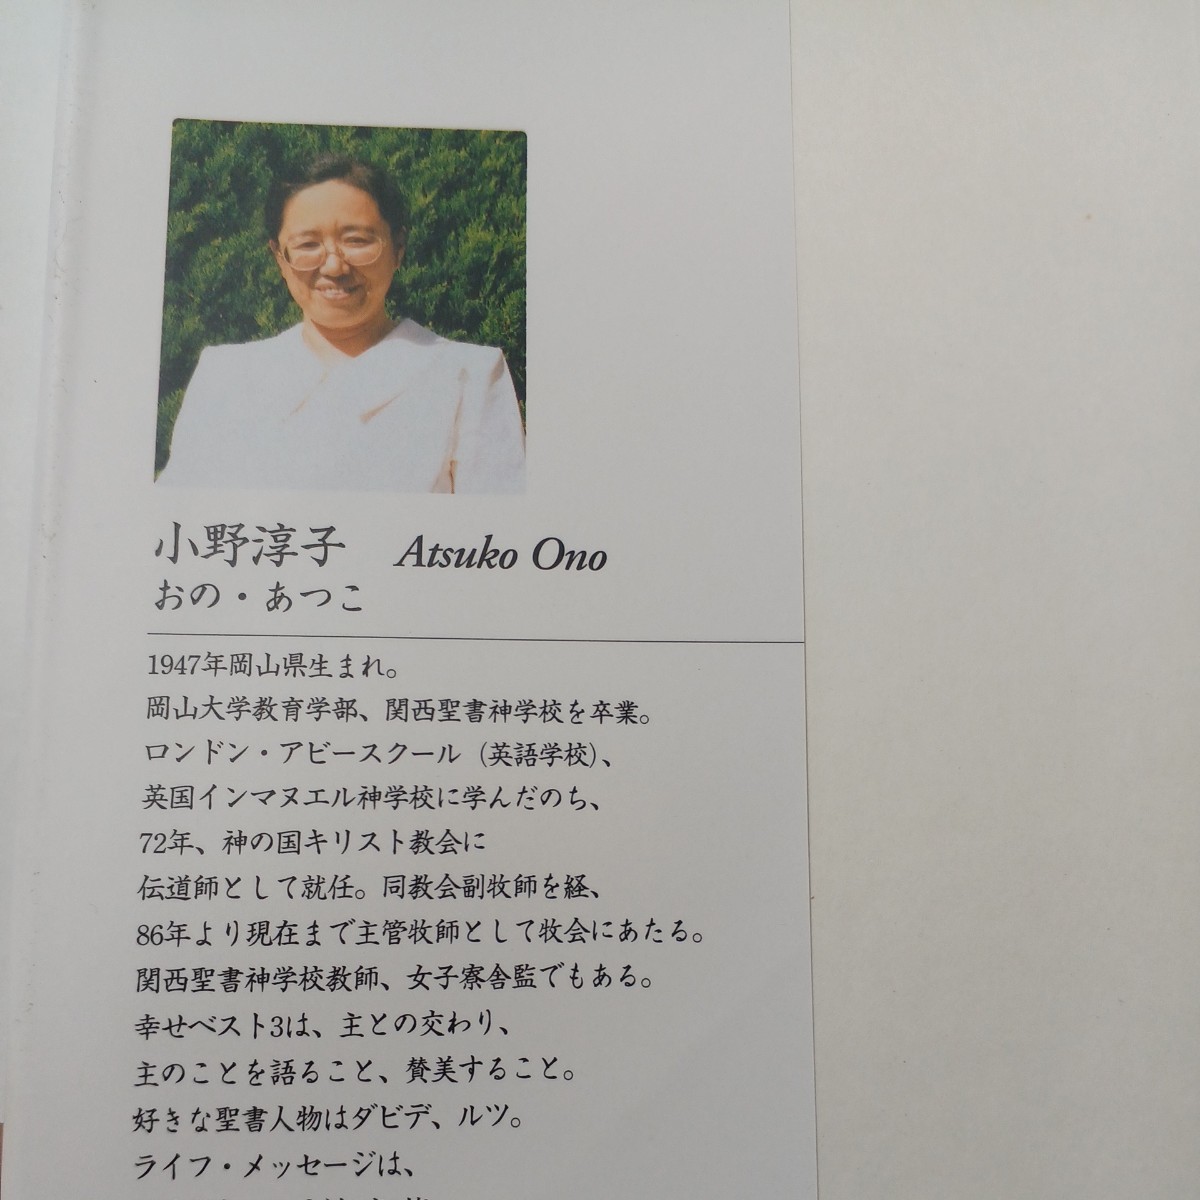 小野淳子 Atsuko Ono
おの・あつこ
1947年岡山県生まれ。
岡山大学教育学部、関西聖書神学校を卒業。
ロンドン・アビースクール（英語学校）、
英国インマヌエル神学校に学んだのち、
72年、神の国キリスト教会に
伝道師として就任。同教会副牧師を経、
86年より現在まで主管牧師として牧会にあたる。
関西聖書神学校教師、女子寮舎監でもある。
幸せベスト3は、主との交わり、
主のことを語ること、賛美すること。
好きな聖書人物はダビデ、ルツ。
ライフ・メッセージは、